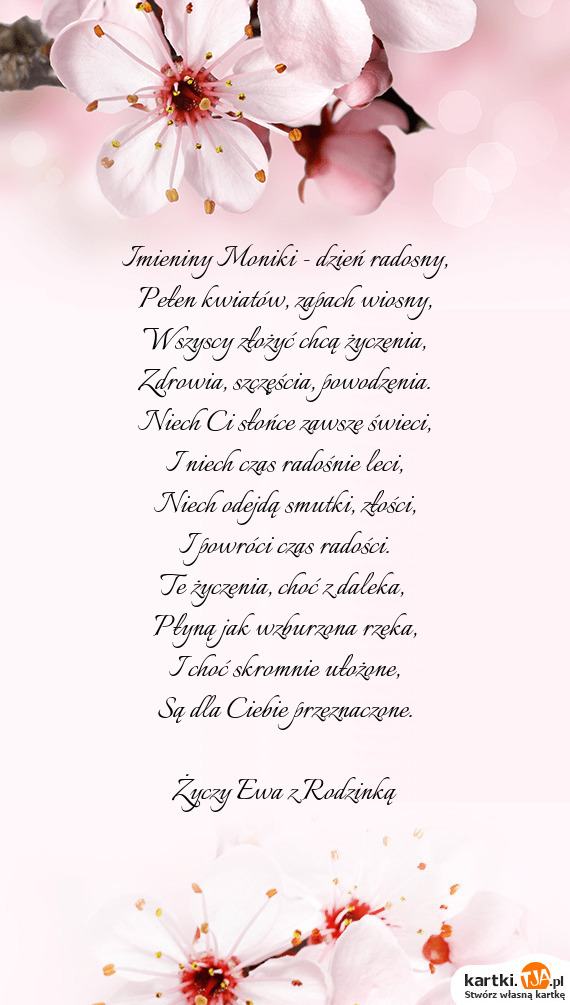 Imieniny Moniki - dzień radosny,
Pełen kwiatów, zapach wiosny,
Wszyscy złożyć chcą życzenia,
Zdrowia, szczęścia, powodzenia.
Niech Ci słońce zawsze świeci,
I niech czas radośnie leci,
Niech odejdą smutki, złości,
I powróci czas radości.
Te życzenia, choć z daleka,
Płyną jak wzburzona rzeka,
I choć skromnie ułożone,
Są dla Ciebie przeznaczone.
Życzy Ewa z Rodzinką
kartki.TJA.pl
Stwórz własną kartkę